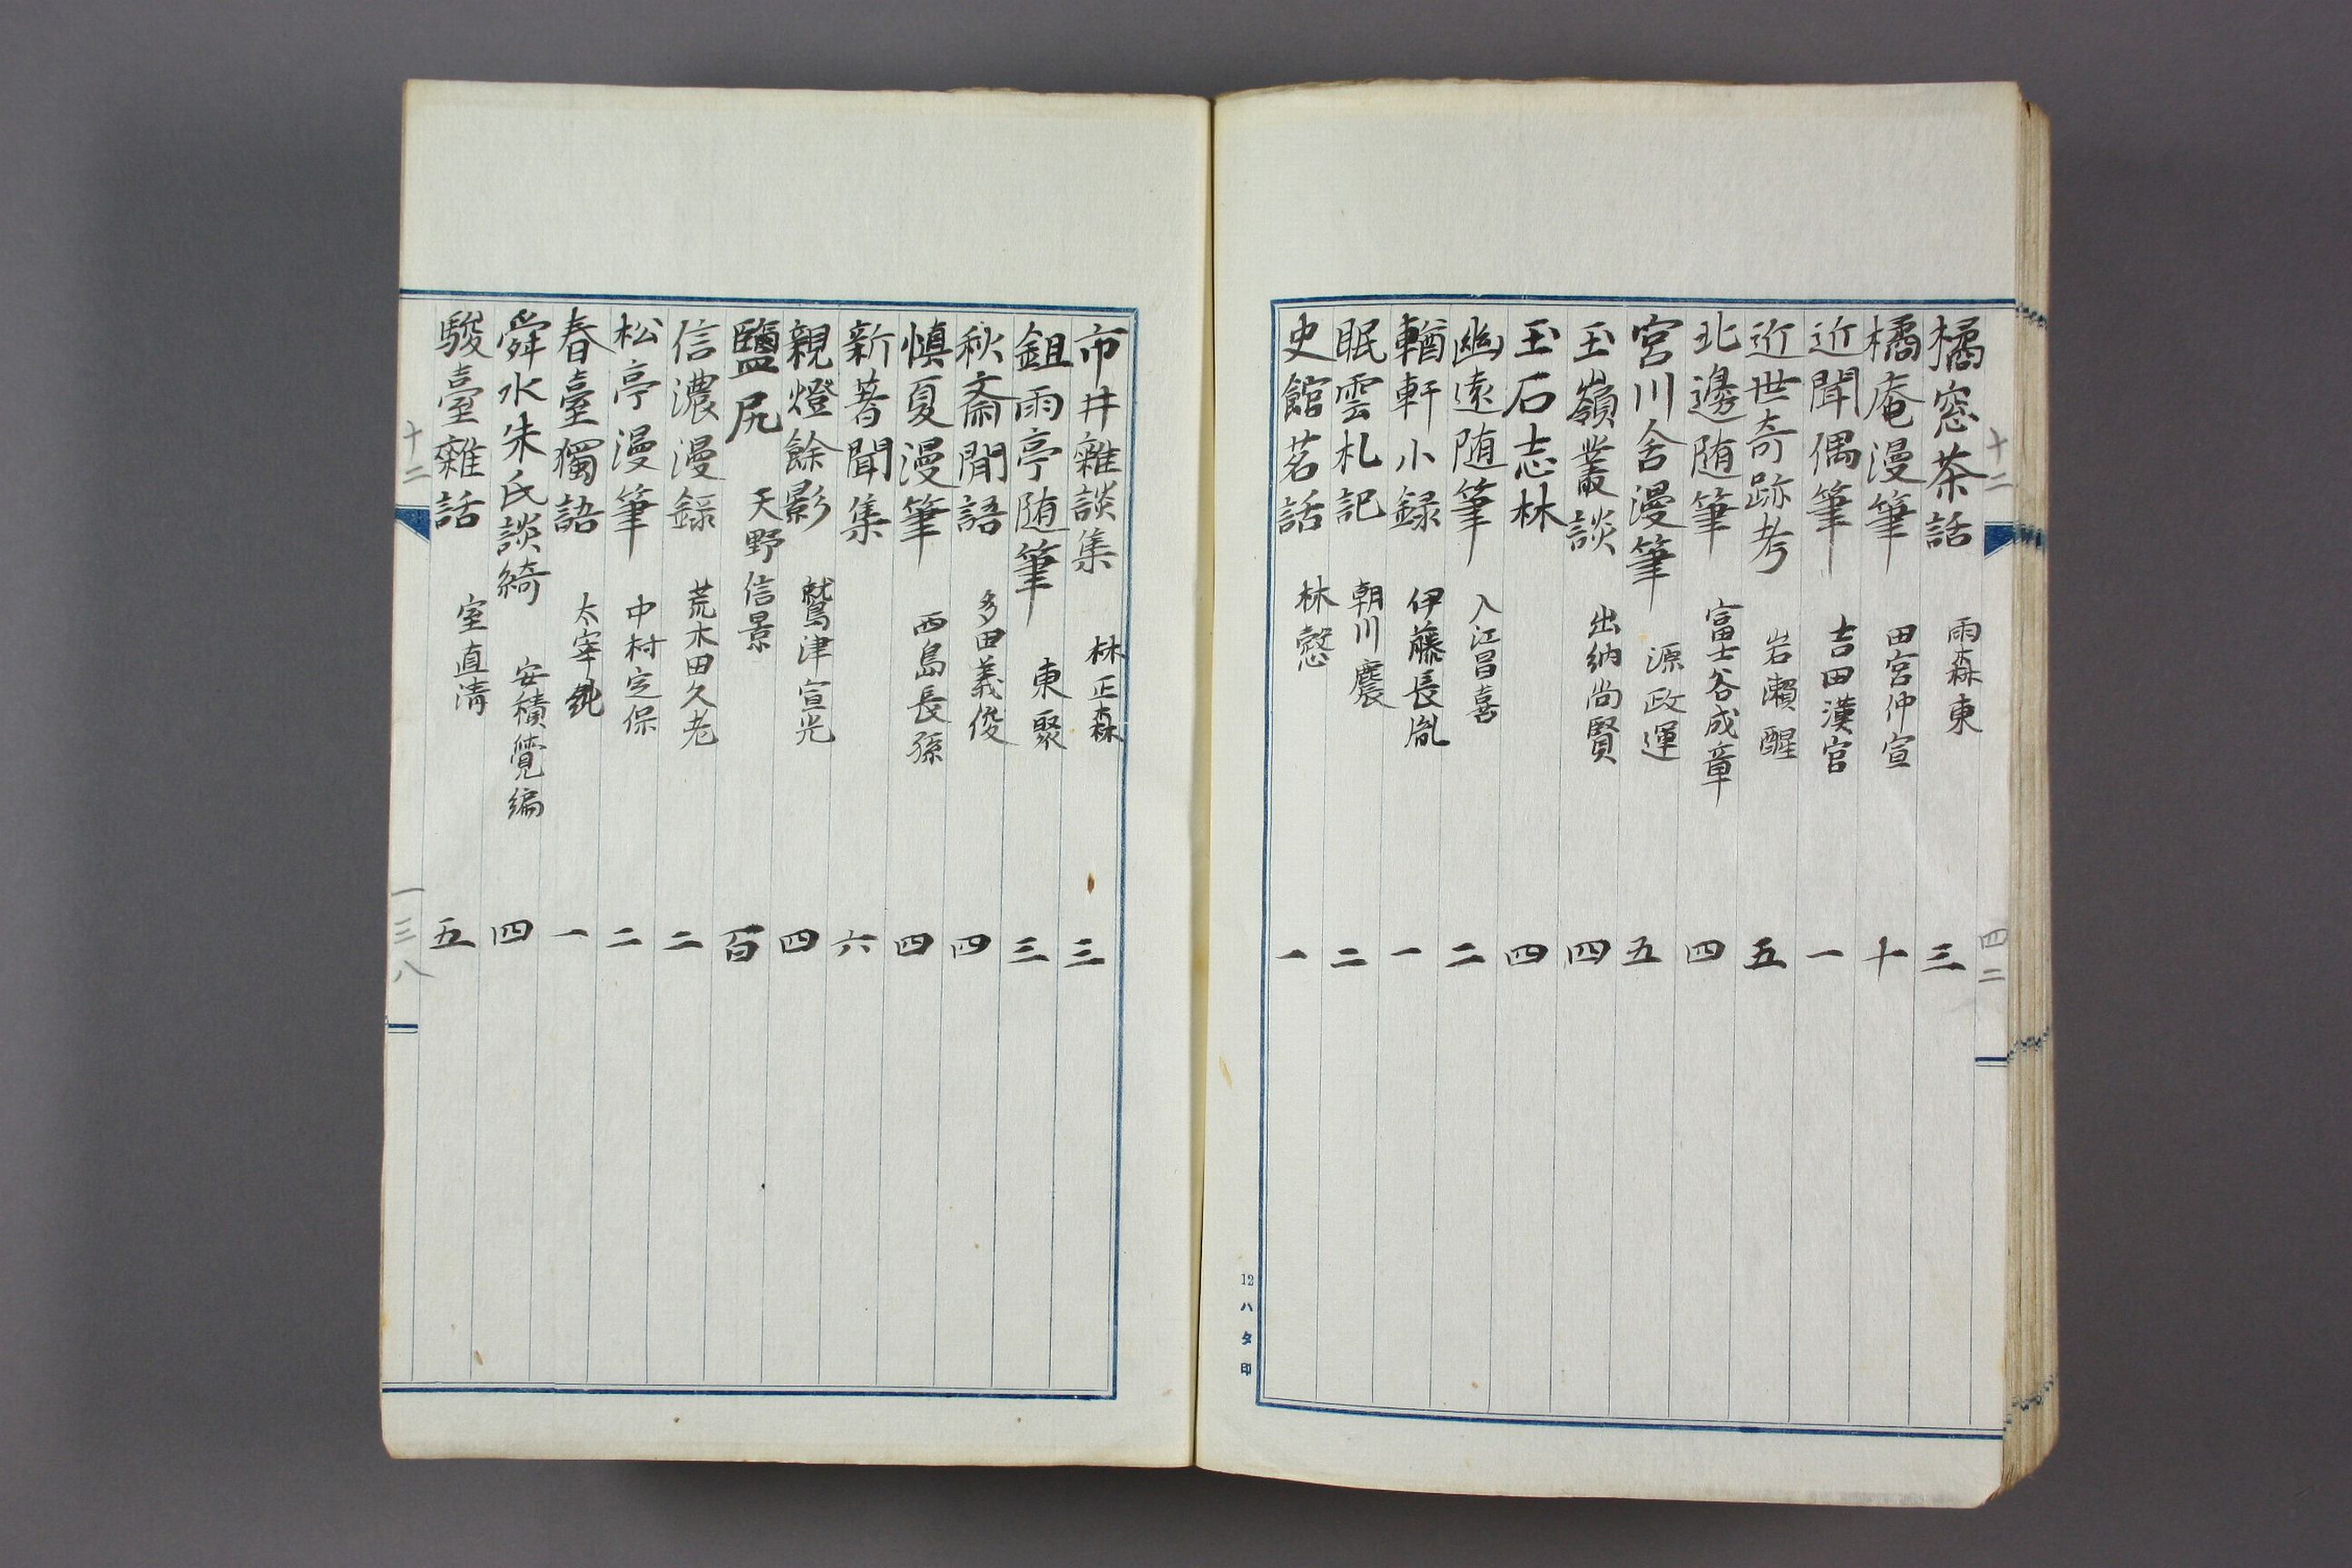 橘窓茶話 雨森東 三
橘庵漫筆 田宮仲宣 十
近聞偶筆 吉田漢官 一
近世奇跡考 岩瀬醒 五
北邊随筆 富士谷成章 四
宮川舎漫筆 源政運 五
玉嶺叢談 出納尚賢 四
玉石志林 四
幽遠随筆 入江昌喜 二
輶軒小録 伊藤長胤 一
眠雲札記 朝川麎 二
史館茗話 林愨 一
十二
四二
12ハタ印
市井雜談集 林正森 三
鉏雨亭随筆 東聚 三
秋齋閒語 多田義俊 四
慎夏漫筆 西島長孫 四
新著聞集 六
親燈餘影 鷲津宣光 四
鹽尻 天野信景 百
信濃漫録 荒木田久老 二
松亭漫筆 中村定保 二
春臺獨語 太宰純 一
舜水朱氏談綺 安積覺編 四
駿臺雜話 室直清 五
十二
一三八